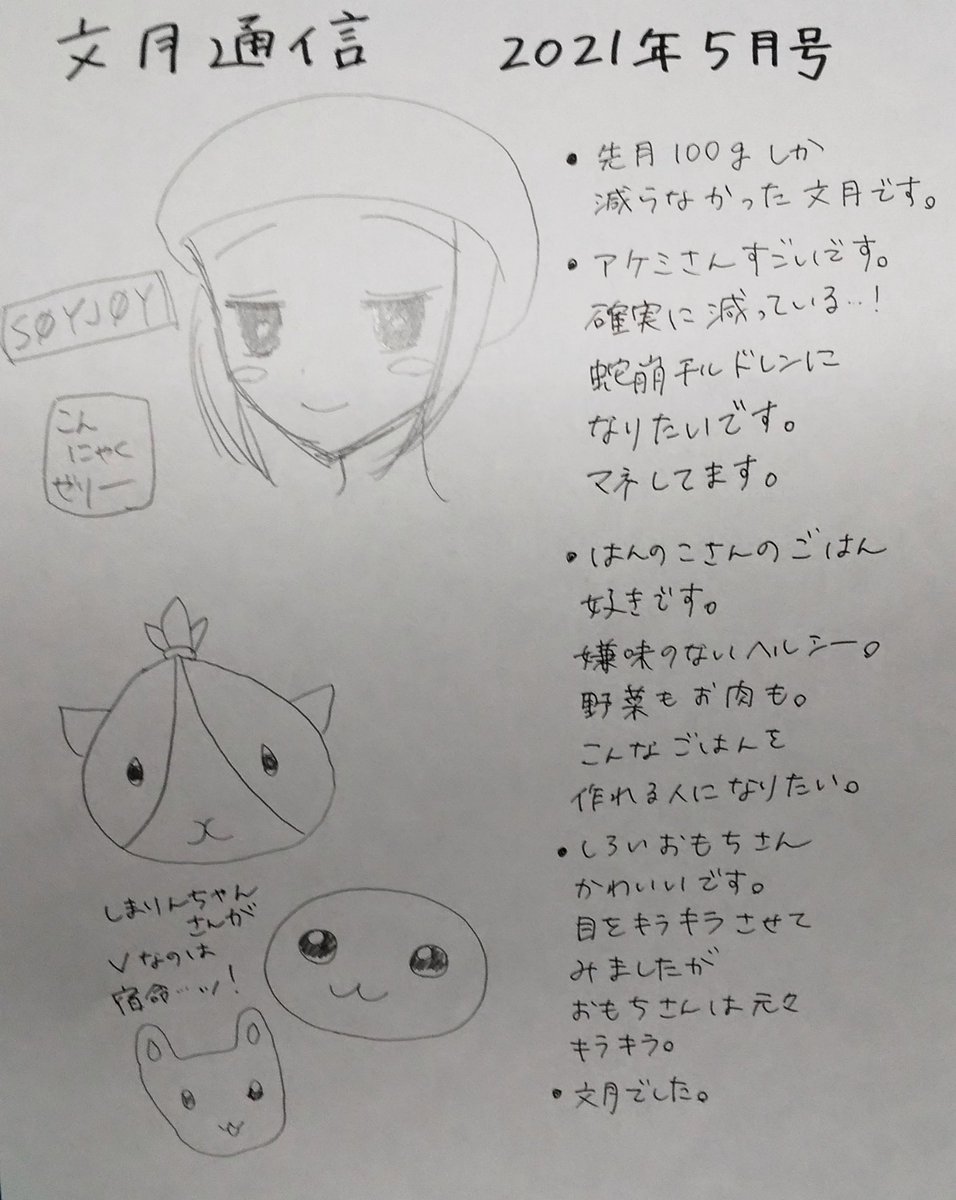 文月通信 2021年5月号
・先月100gしか
減らなかった文月です。
・アケミさんすごいです。
確実に減っている…!
蛇崩チルドレンに
なりたいです。
マネしてます。
・はんのこさんのごはん
好きです。
嫌味のないヘルシー。
野菜もお肉も。
こんなごはんを
作れる人になりたい。
・しろいおもちさん
かわいいです。
目をキラキラさせて
みましたが
おもちさんは元々
キラキラ。
・文月でした。
SOYJOY
こん
にゃく
ゼリー
しまりんちゃん
さんが
Vなのは
宿命…ッ!